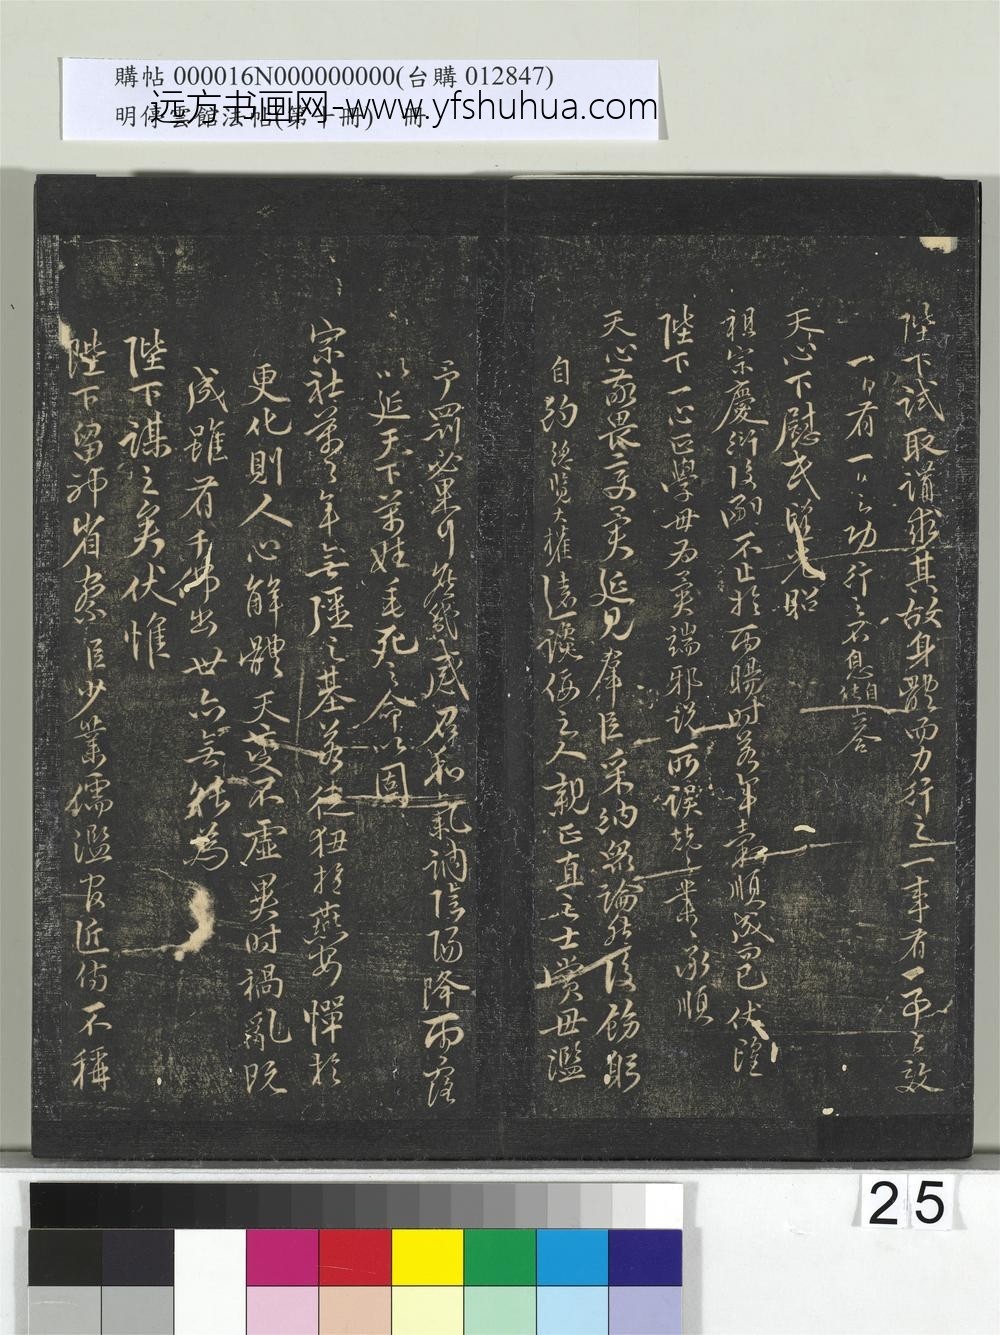 購帖 000016N000000000(台購 012847)
明停雲館法帖(第十冊) 冊
远方书画网-www.yfshuhua.com
陛下試取講求其故身體而力行之一事有一事之效
一日有一日之功行之不息自
天心下慰民望光昭
祖宗慶衍後嗣不止於雨暘時若年穀順成而已伏望
陛下一心正學毋為異端邪說所誤兢兢業業承順
天心敬畏變異延見群臣采納眾論然後飭躬
自約總覽大權遠讒佞之人親正直之士賞毋濫
予罰必果行庶幾感召和氣調陰陽降雨露
以延天下萬姓垂死之命以固
宗社萬年無疆之基若徒狃於燕安憚於
更化則人心解體天變不虛異時禍亂既
成雖有千佛出世亦無能為
陛下謀之矣伏惟
陛下留神省察臣少業儒濫官近侍不稱
25